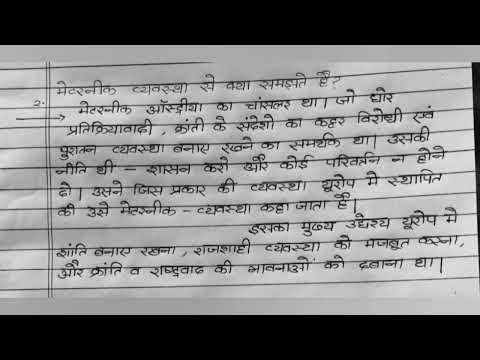 2. मेटरनीक व्यवस्था से क्या समझते हैं?
→ मेटरनीक ऑस्ट्रीया का चांसलर था। जो घोर
प्रतिक्रियावादी, क्रांती के संदेशो का कट्टर विरोधी एवं
पुरातन व्यवस्था बनाए रखने का समर्थक था। उसकी
नीति थी - शासन करो और कोई परिवर्तन न होने
दो। उसने जिस प्रकार की व्यवस्था यूरोप मे स्थापित
की उसे मेटरनीक - व्यवस्था कहा जाता है।
इसका मुख्य उद्येश्य यूरोप मे
शांति बनाए रखना, राजशाही व्यवस्था को मजबूत करना,
और क्रांति व राष्ट्रवाद की भावनाओं को दबाना था।